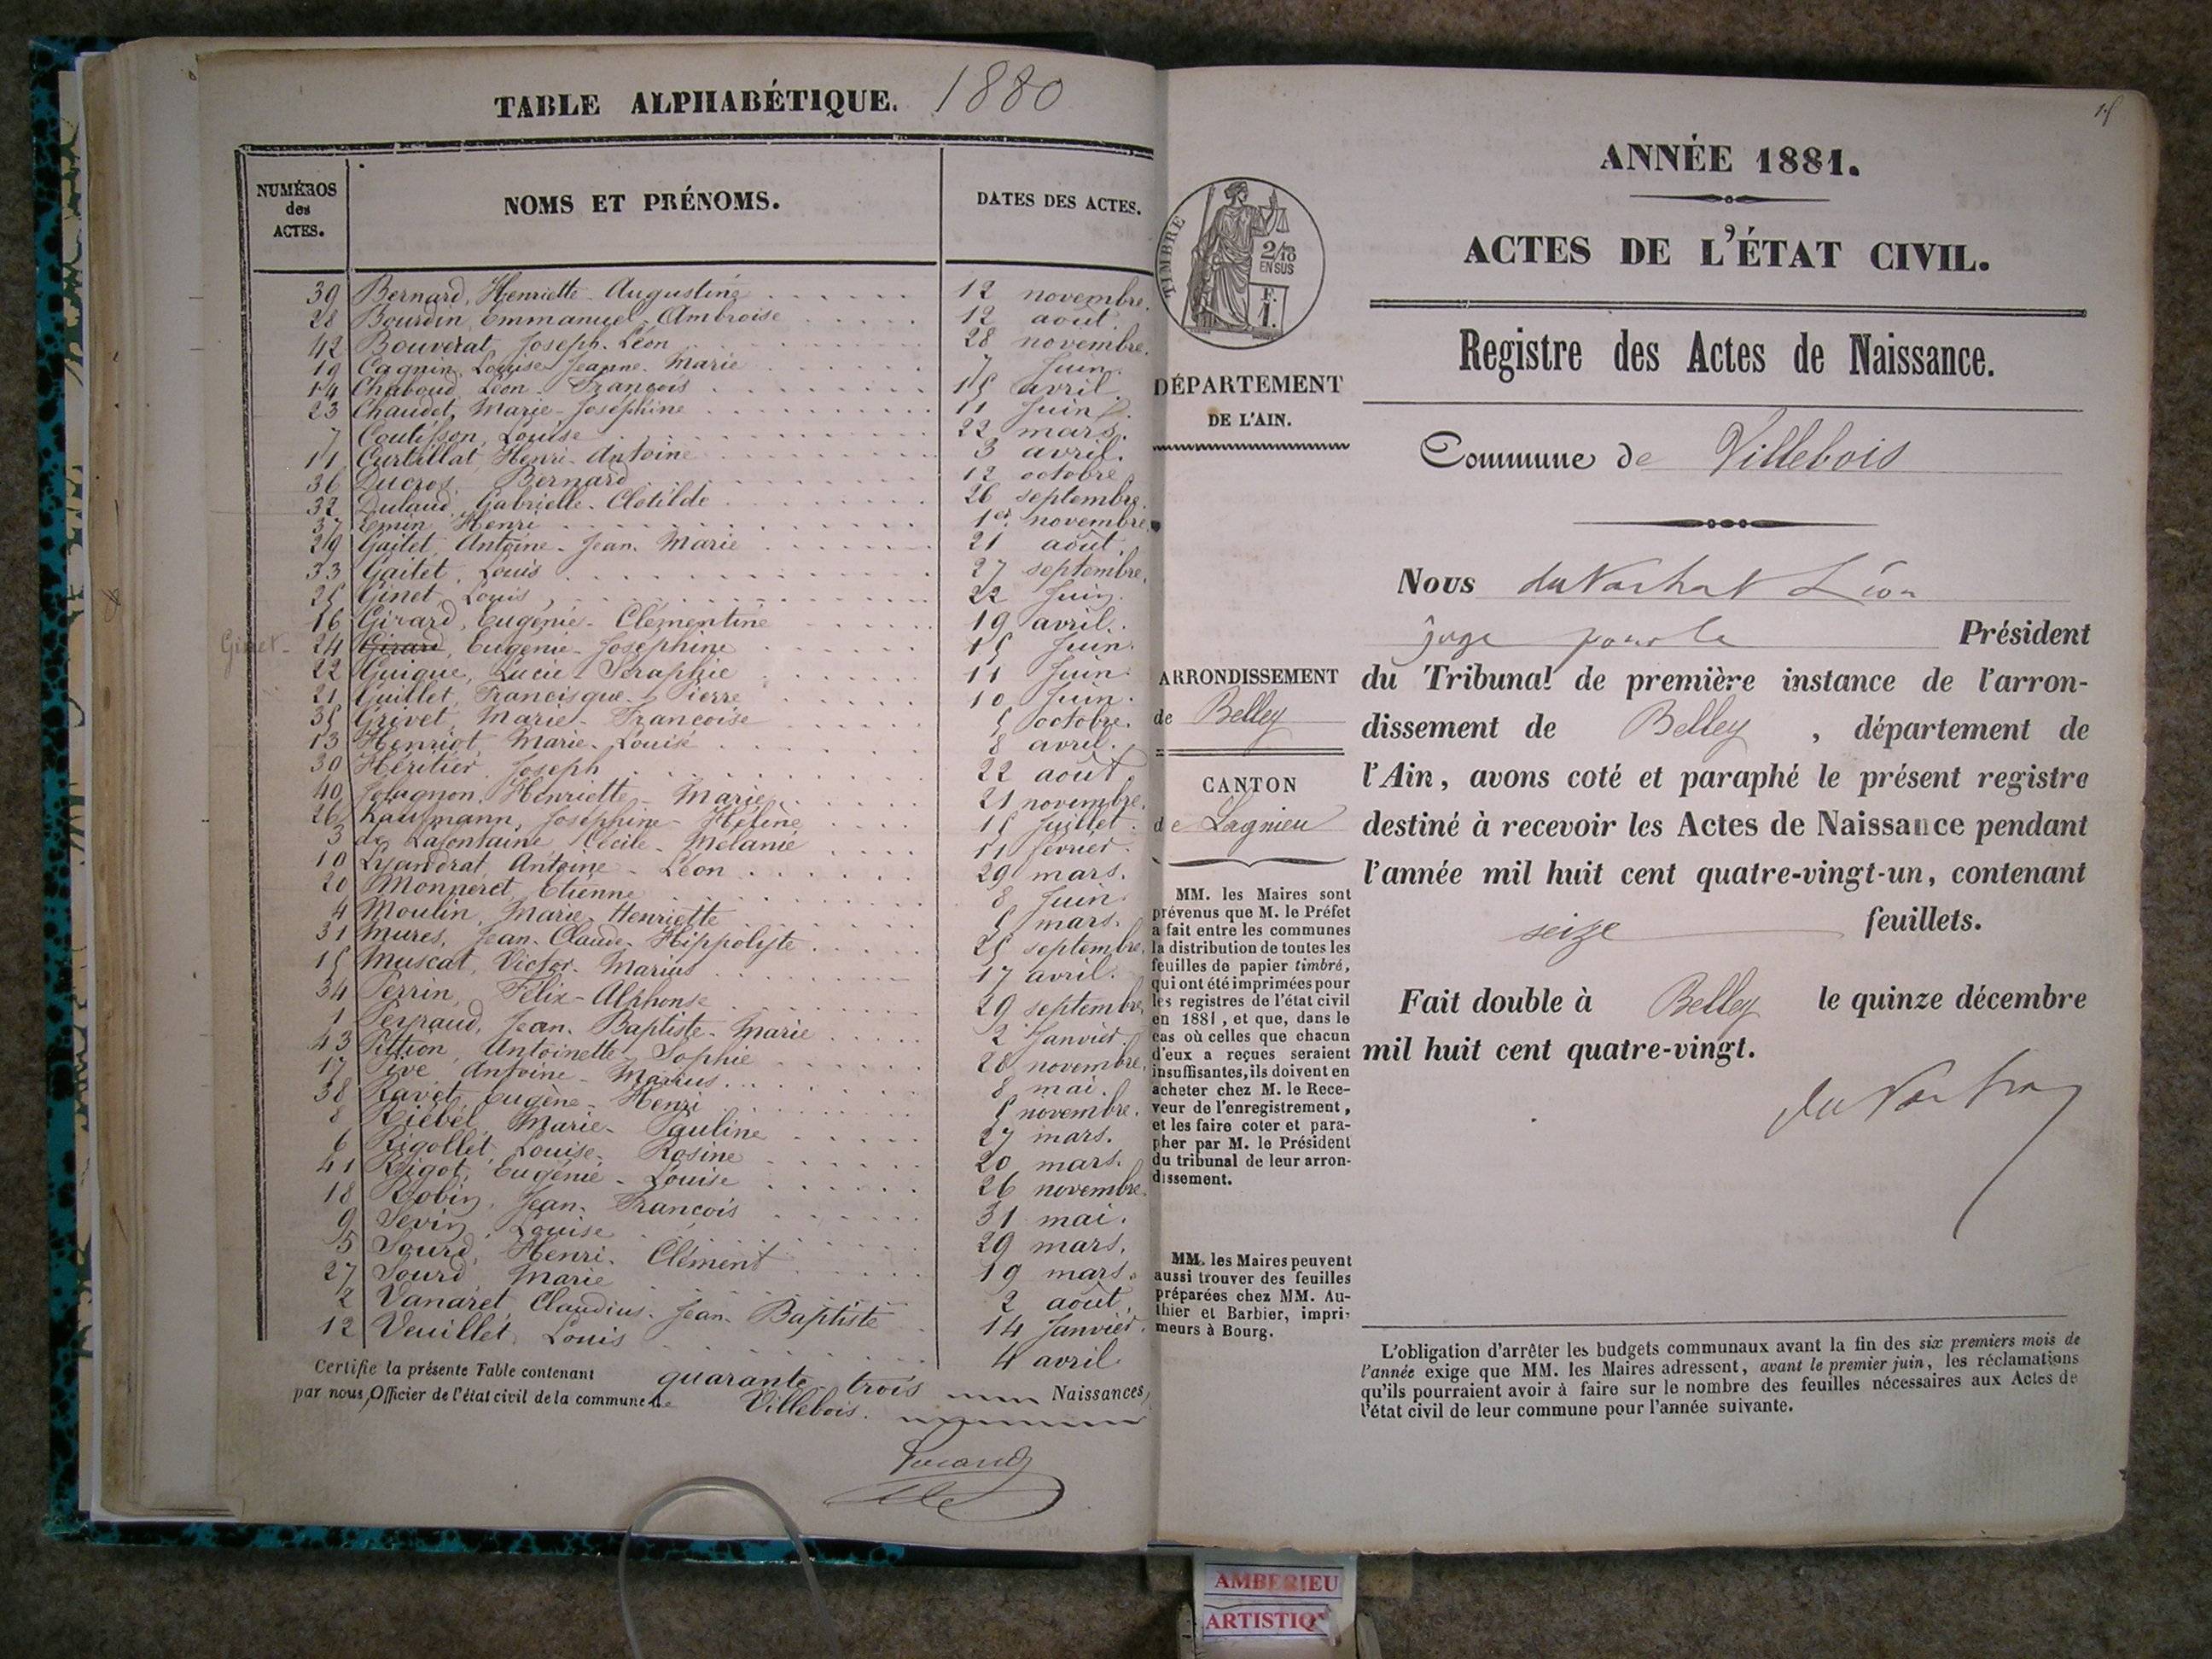 TABLE ALPHABÉTIQUE. 1880
NUMÉROS des ACTES. NOMS ET PRÉNOMS. DATES DES ACTES.
39 Bernard, Henriette-Augustine 12 novembre.
28 Bourdin, Emmanuel-Ambroise 12 août.
42 Bouverat, Joseph-Léon 28 novembre.
19 Cagnin, Louise-Jeanne-Marie 7 Juin.
14 Chaboud, Léon-François 15 avril.
23 Chaudet, Marie-Joséphine 11 Juin.
7 Coutisson, Louise 22 mars.
11 Curtillat, Henri-Antoine 3 avril.
36 Ducros, Bernard 12 octobre.
32 Dulaud, Gabrielle-Clotilde 26 septembre.
37 Emin, Henri 1er novembre.
29 Gaitet, Antoine-Jean-Marie 21 août.
33 Gaitet, Louis 27 septembre.
25 Ginet, Louis 22 Juin.
16 Girard, Eugénie-Clémentine 19 avril.
Ginet- 24 Girard, Eugénie-Joséphine 15 Juin.
22 Guigue, Lucie-Séraphie 11 Juin.
21 Guillet, Francisque-Pierre 10 Juin.
35 Grivet, Marie-Françoise 5 octobre.
13 Henriot, Marie-Louise 8 avril.
30 Héritier, Joseph 22 août.
40 Jolagnon, Henriette-Marie 21 novembre.
26 Kaufmann, Joséphine-Hélène 15 Juillet.
3 de Lafontaine, Cécile-Mélanie 11 février.
10 Lyandrat, Antoine-Léon 29 mars.
20 Monneret, Etienne 8 Juin.
4 Moulin, Marie-Henriette 5 mars.
31 Mures, Jean-Claude-Hippolyte 25 septembre.
15 Muscat, Victor-Marius 17 avril.
34 Perrin, Félix-Alphonse 29 septembre.
1 Perraud, Jean-Baptiste-Marie 2 Janvier.
43 Pittion, Antoinette-Sophie 28 novembre.
17 Pive, Antoine-Marius 8 mai.
38 Ravet, Eugène-Henri 5 novembre.
8 Riebel, Marie-Pauline 27 mars.
6 Rigollet, Louise-Rosine 20 mars.
41 Rigot, Eugénie-Louise 26 novembre.
18 Robin, Jean-François 31 mai.
9 Sevin, Louise 29 mars.
5 Sourd, Henri-Clément 19 mars.
27 Sourd, Marie 2 août.
2 Vanaret, Claudius-Jean-Baptiste 14 Janvier.
12 Veuillet, Louis 4 avril
Certifie la présente Table contenant quarante trois Naissances,
par nous, Officier de l'état civil de la commune de Villebois.
15
ANNÉE 1881.
ACTES DE L'ÉTAT CIVIL.
Registre des Actes de Naissance.
Commune de Villebois
TIMBRE
2/10
EN SUS
F.
1.
DÉPARTEMENT
DE L'AIN.
ARRONDISSEMENT
de Belley
CANTON
de Lagnieu
MM. les Maires sont
prévenus que M. le Préfet
a fait entre les communes
la distribution de toutes les
feuilles de papier timbré,
qui ont été imprimées pour
les registres de l'état civil
en 1881, et que, dans le
cas où celles que chacun
d'eux a reçues seraient
insuffisantes, ils doivent en
acheter chez M. le Rece-
veur de l'enregistrement,
et les faire coter et para-
pher par M. le Président
du tribunal de leur arron-
dissement.
MM. les Maires peuvent
aussi trouver des feuilles
préparées chez MM. Au-
thier et Barbier, impri-
meurs à Bourg.
Nous du Vachat Léon
juge pour le Président
du Tribunal de première instance de l'arron-
dissement de Belley, département de
l'Ain, avons coté et paraphé le présent registre
destiné à recevoir les Actes de Naissance pendant
l'année mil huit cent quatre-vingt-un, contenant
seize feuillets.
Fait double à Belley le quinze décembre
mil huit cent quatre-vingt.
du Vachat
L'obligation d'arrêter les budgets communaux avant la fin des six premiers mois de
l'année exige que MM. les Maires adressent, avant le premier juin, les réclamations
qu'ils pourraient avoir à faire sur le nombre des feuilles nécessaires aux Actes de
l'état civil de leur commune pour l'année suivante.
AMBERIEU
ARTISTIQ